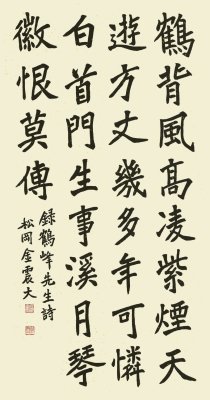 鶴背風高凌紫煙天
遊方丈幾多年可憐
白首門生事溪月琴
徽恨莫傳
錄鶴峰先生詩
松岡金震大